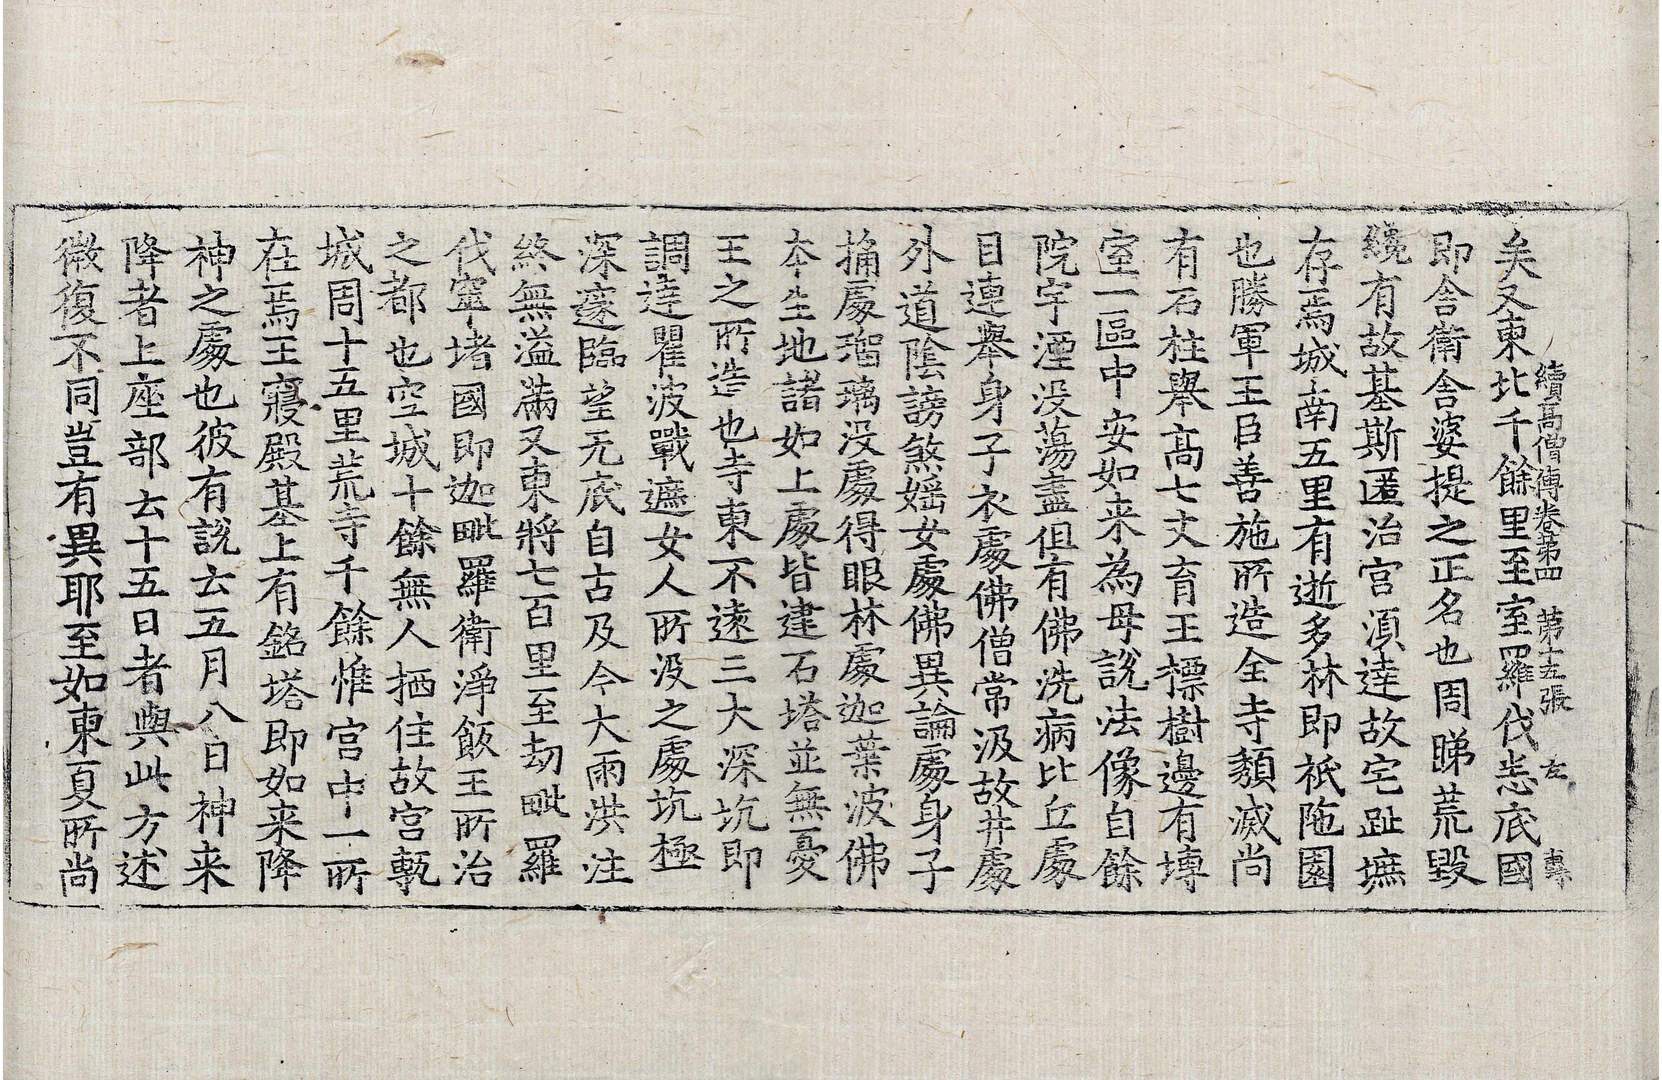 續高僧傳卷第四　第十五張　左
矣又東北千餘里至室羅伐悉底國
即舍衛舍婆提之正名也周睇荒毀
纔有故基斯匿治宮湏達故宅趾墌
存焉城南五里有逝多林即祇陁園
也勝軍王臣善施所造全寺頹滅尚
有石柱舉髙七丈育王標樹邊有塼
室一區中安如来為母說法像自餘
院宇湮没蕩盡但有佛洗病比丘處
目連舉身子衣處佛僧常汲故井處
外道陰謗煞婬女處佛異論處身子
捅處瑠璃没處得眼林處迦葉波佛
本生地諸如上處皆建石塔並無憂
王之所造也寺東不遠三大深坑即
調達瞿波戰遮女人所没之處坑極
深邃臨望无底自古及今大雨洪注
終無溢滿又東將七百里至劫毗羅
伐窣堵國即迦毗羅衛淨飯王所治
之都也空城十餘無人栖住故宮塼
城周十五里荒寺千餘惟宮中一所
在焉王寢殿基上有銘塔即如来降
神之處也彼有說云五月八日神来
降者上座部云十五日者與此方述
微復不同豈有異耶至如東夏所尚